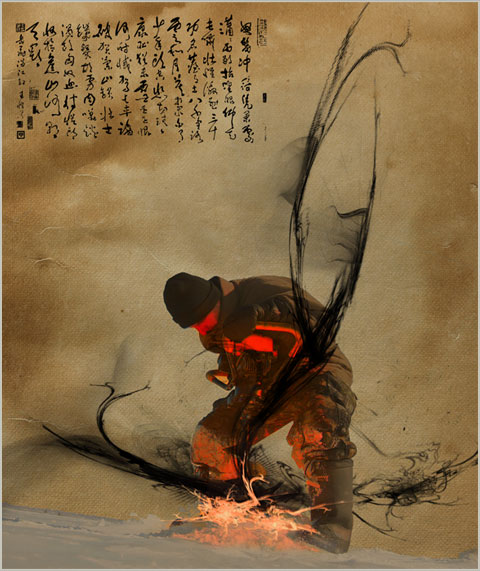 怒髮衝冠憑闌處
瀟瀟雨歇抬望眼仰天
長嘯壯懷激烈三十
功名塵與土八千里路
雲和月莫等閒白了
少年頭空悲切靖
康恥猶未雪臣子恨
何時滅駕長車踏
破賀蘭山缺壯志
飢餐胡虜肉笑談
渴飲匈奴血待從頭
收拾舊山河朝
天闕
岳飛滿江紅